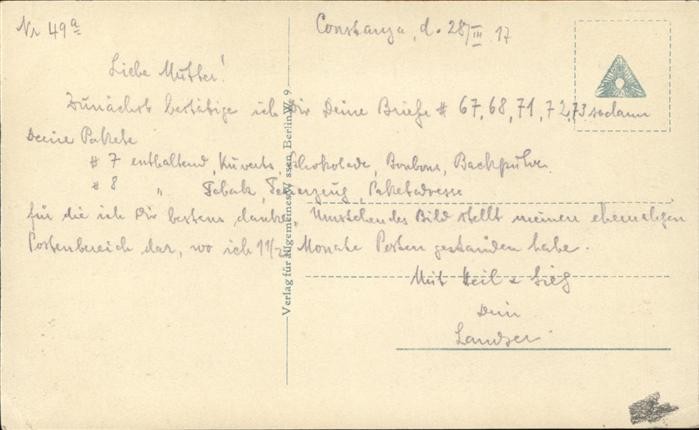 Nr 49a
Constanza, d. 28/III 17
Liebe Mutter!
Zunächst bestätige ich Dir Deine Briefe # 67, 68, 71, 72, 73 sodann
Deine Pakete
# 7 enthaltend, Kuverts, Schokolade, Bonbons, Backpulver.
# 8 " Tabak, Feuerzeug, Paketadresse
für die ich Dir bestens danke. Umstehendes Bild stellt meinen ehemaligen
Postenbereich dar, wo ich 1 1/2 Monate Posten gestanden habe.
Mit Heil & Sieg
Dein
Landser.
Verlag für allgemeines Wissen, Berlin W. 9